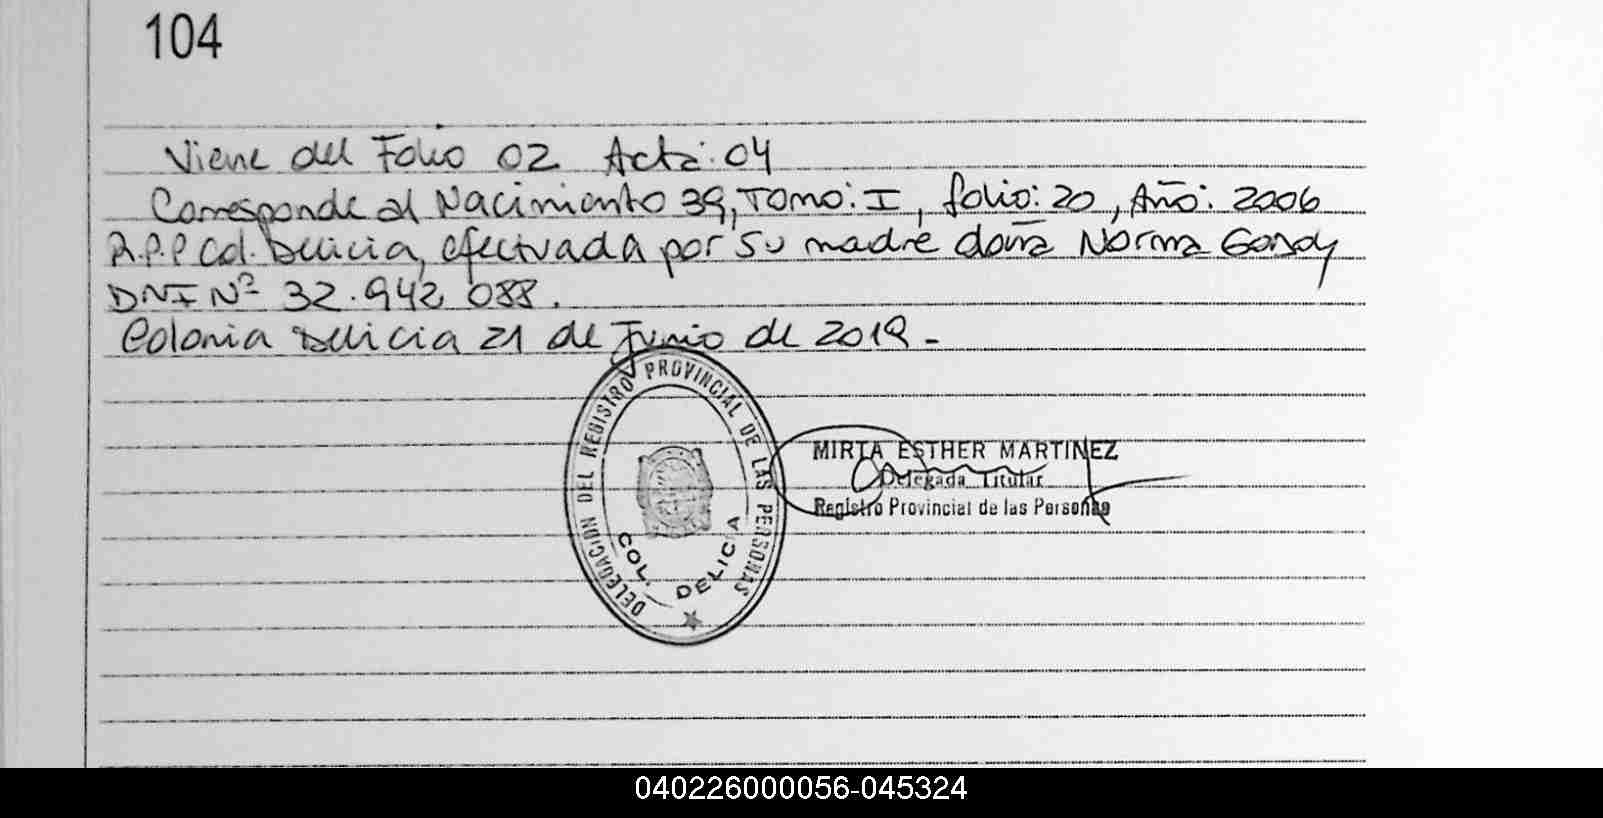 104
Viene del Folio 02 Acta: 04
Corresponde al Nacimiento 39, Tomo: I, folio: 20, Año: 2006
R.P.P Col. Delicia, efectuada por su madre doña Norma Godoy
DNI Nº 32.942 088.
Colonia Delicia 21 de Junio de 2019.-
DELEGACION DEL REGISTRO PROVINCIAL DE LAS PERSONAS
COL. DELICIA
MIRTA ESTHER MARTINEZ
Delegada Titular
Registro Provincial de las Personas
040226000056-045324